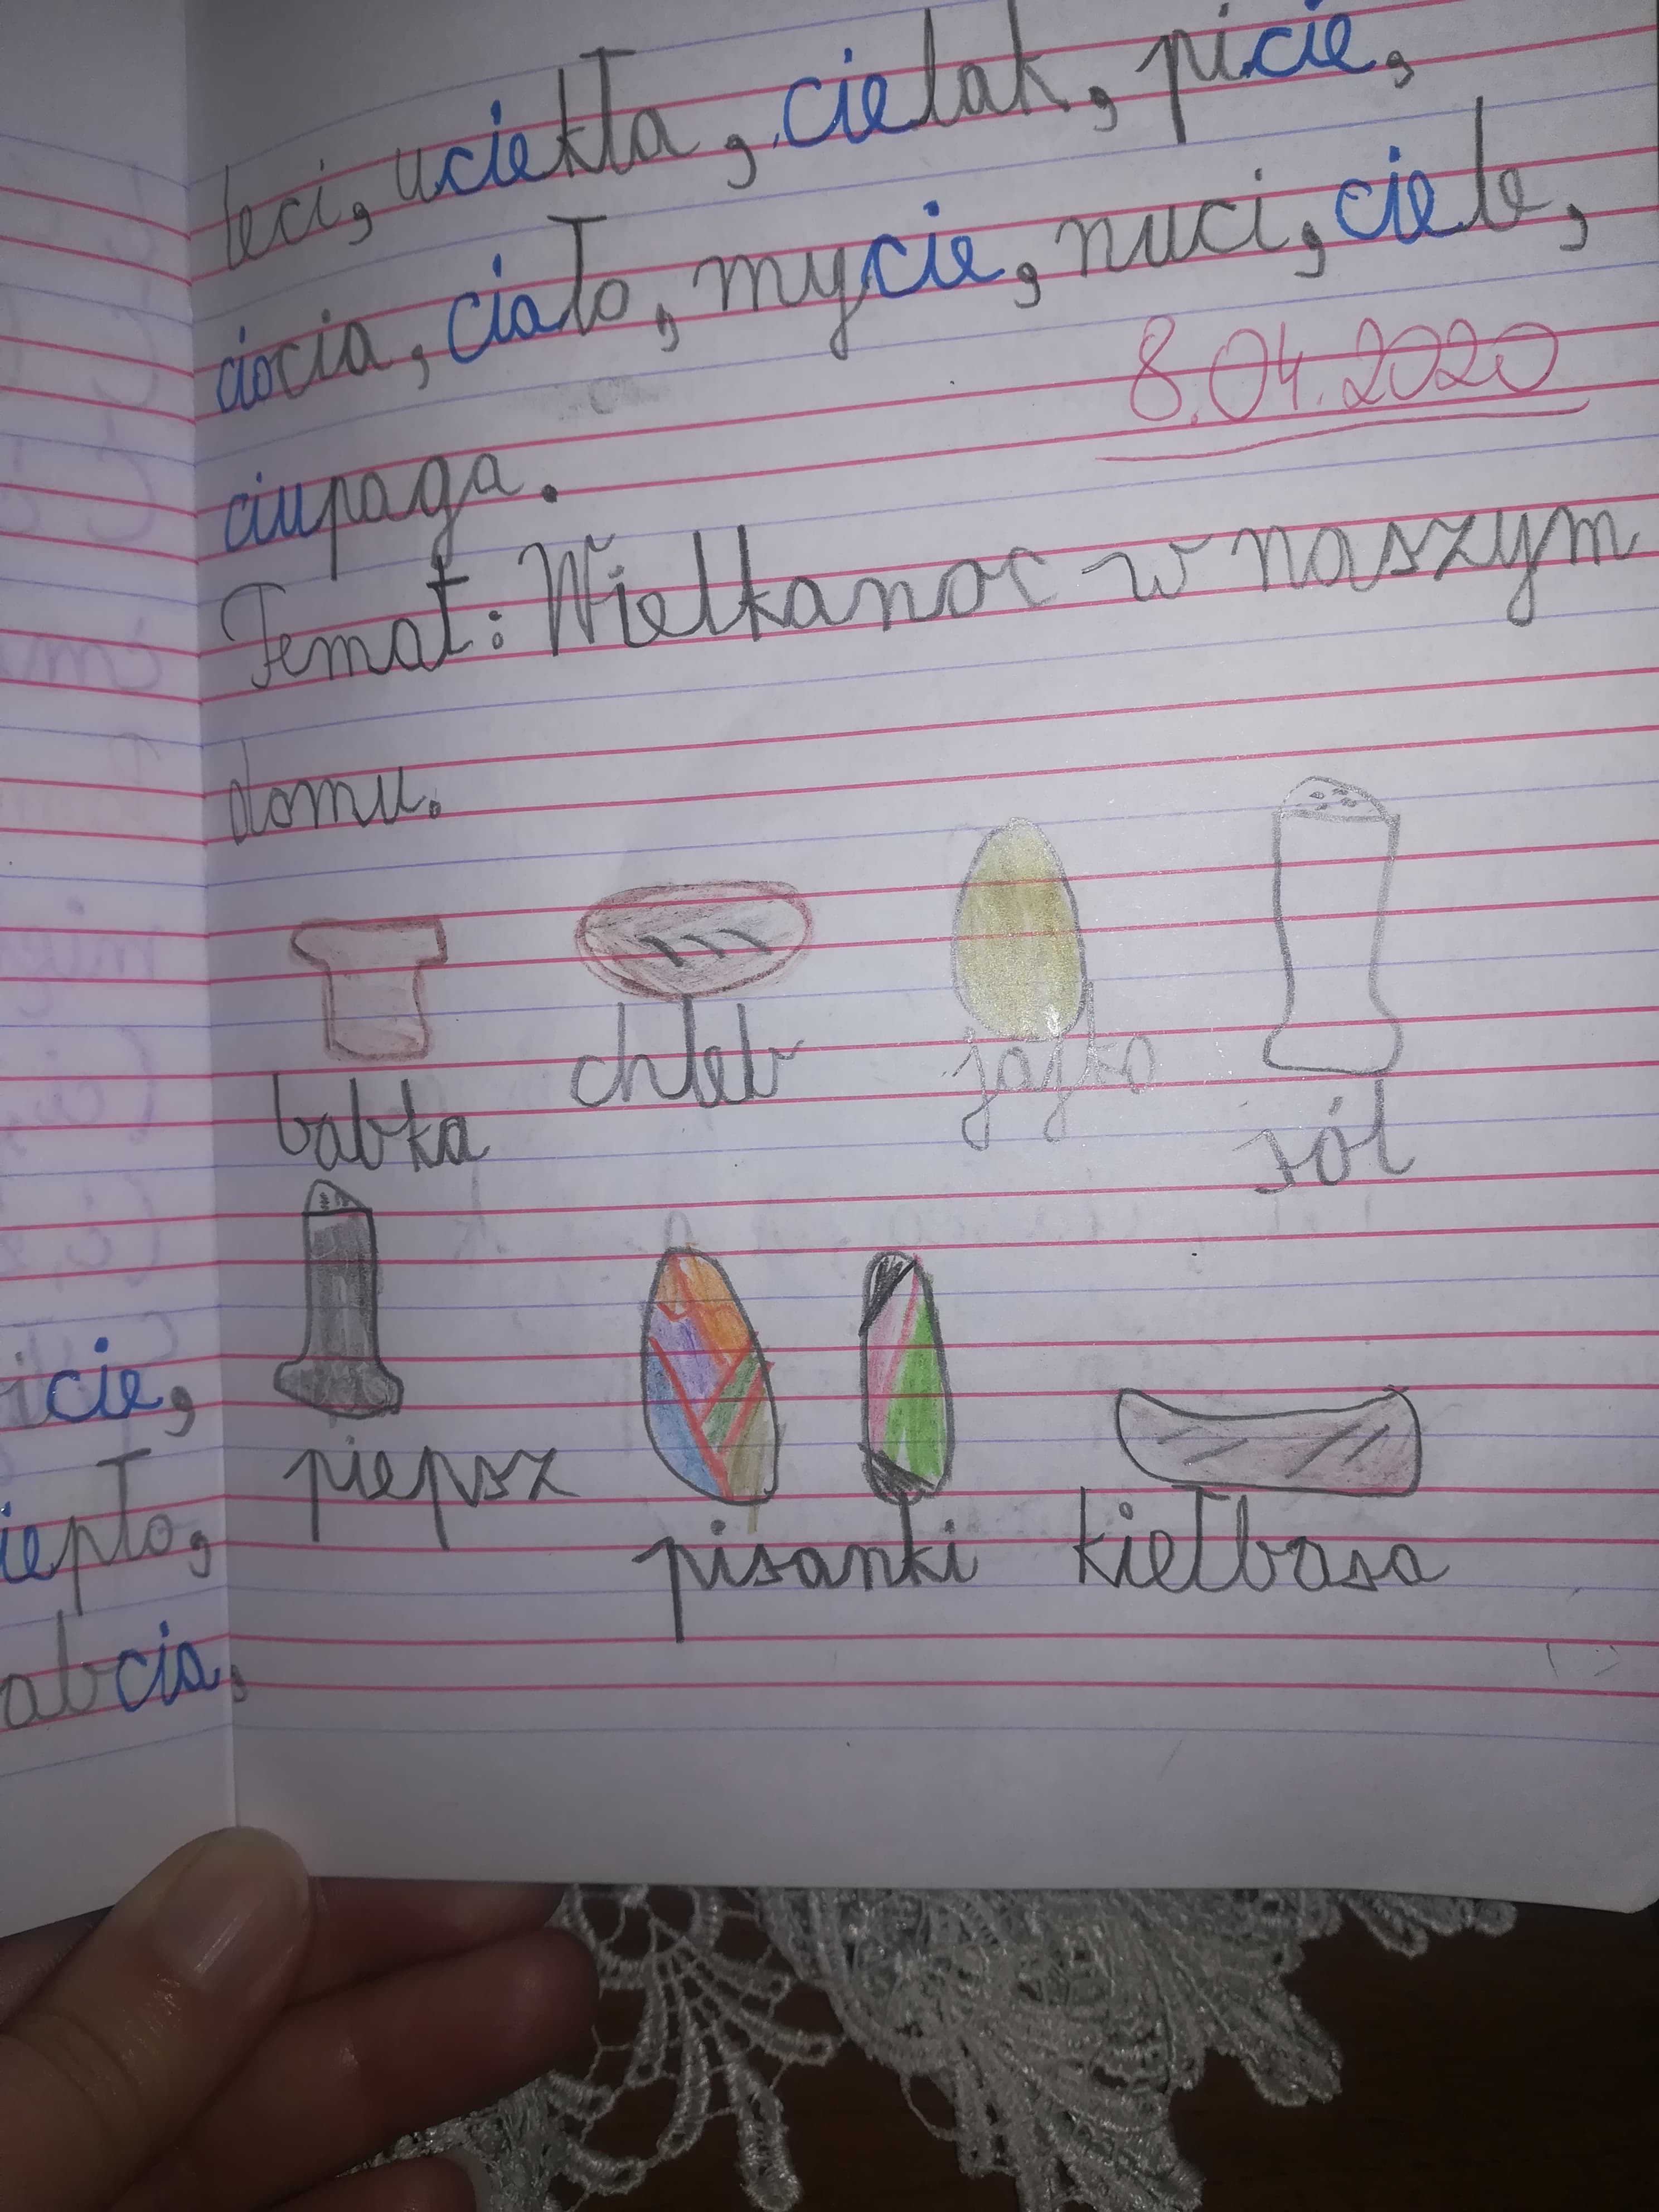 leci, uciekła, cielak, picie,
ciocia, ciało, mycie, nuci, ciele,
8.04.2020
ciupaga.
Temat: Wielkanoc w naszym
domu.
babka chleb jajko sól
piepsz pisanki kiełbasa
icie,
iepło,
abcia,